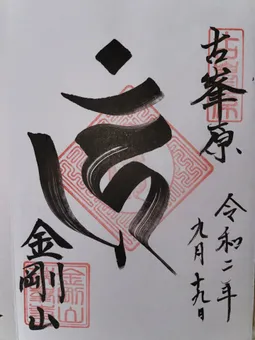 古峯原
令和二年
九月十九日
金剛山